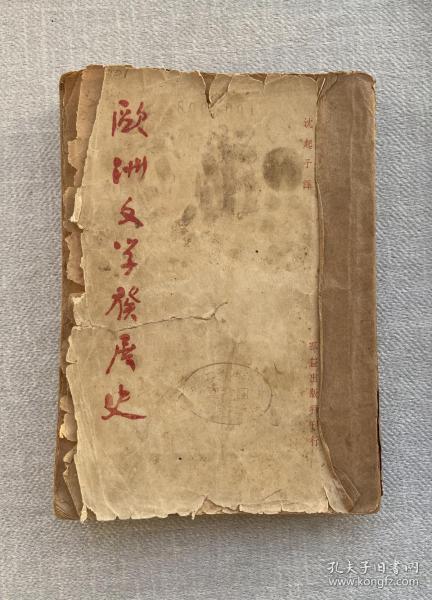 歐洲文学發展史
沈起予譯
羣益出版社印行
孔夫子旧书网
www.kongfz.com